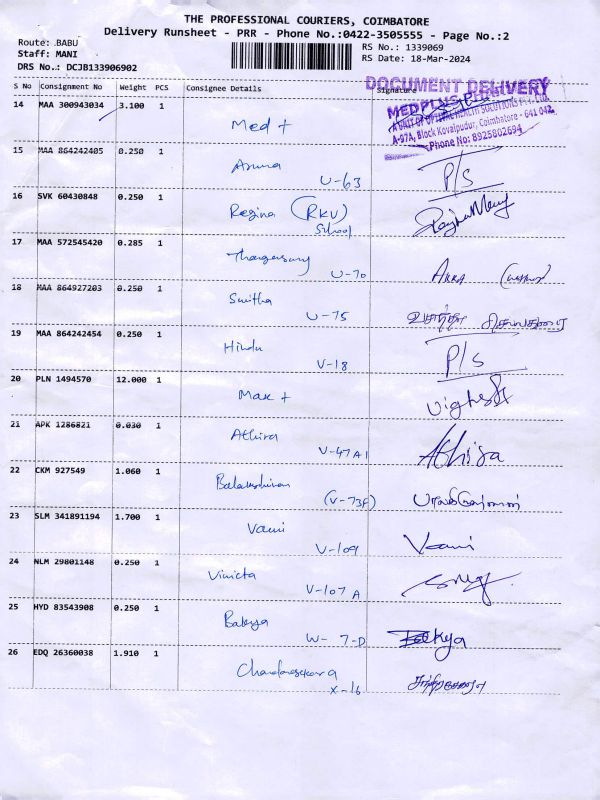 THE PROFESSIONAL COURIERS, COIMBATORE
Delivery Runsheet - PRR - Phone No.:0422-3505555 - Page No.:2
Route: .BABU
RS No.: 1339069
Staff: MANI
RS Date: 18-Mar-2024
DRS No.: DCJB133906902
S No Consignment No Weight PCS Consignee Details Signature
DOCUMENT DELIVERY
MEDPLUS
A UNIT OF OPTIVAL HEALTH SOLUTIONS PVT. LTD.
A-97A, Block Kovaipudur, Coimbatore - 641 042.
Phone No: 8925802694
14 MAA 300943034 3.100 1
Med +
15 MAA 864242405 0.250 1
Aruna
U-63 P/S
16 SVK 60430848 0.250 1
Regina (RKV)
School
17 MAA 572545420 0.285 1
U-70
18 MAA 864927203 0.250 1
Smitha
U-75
19 MAA 864242454 0.250 1
Hindu
V-18 P/S
20 PLN 1494570 12.000 1
Max +
21 APK 1286821 0.030 1
Athira
V-47A1 Athira
22 CKM 927549 1.060 1
(V-73F)
23 SLM 341891194 1.700 1
Vani
V-109 Vani
24 NLM 29801148 0.250 1
Vinicta
V-107A
25 HYD 83543908 0.250 1
Bakya
W-7-D Bakya
26 EDQ 26360038 1.910 1
X-16